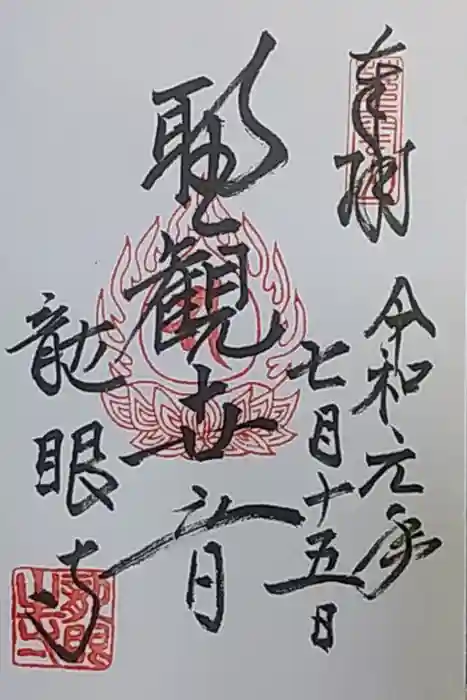 奉拝
令和元年
七月十五日
聖観世音
龍眼寺